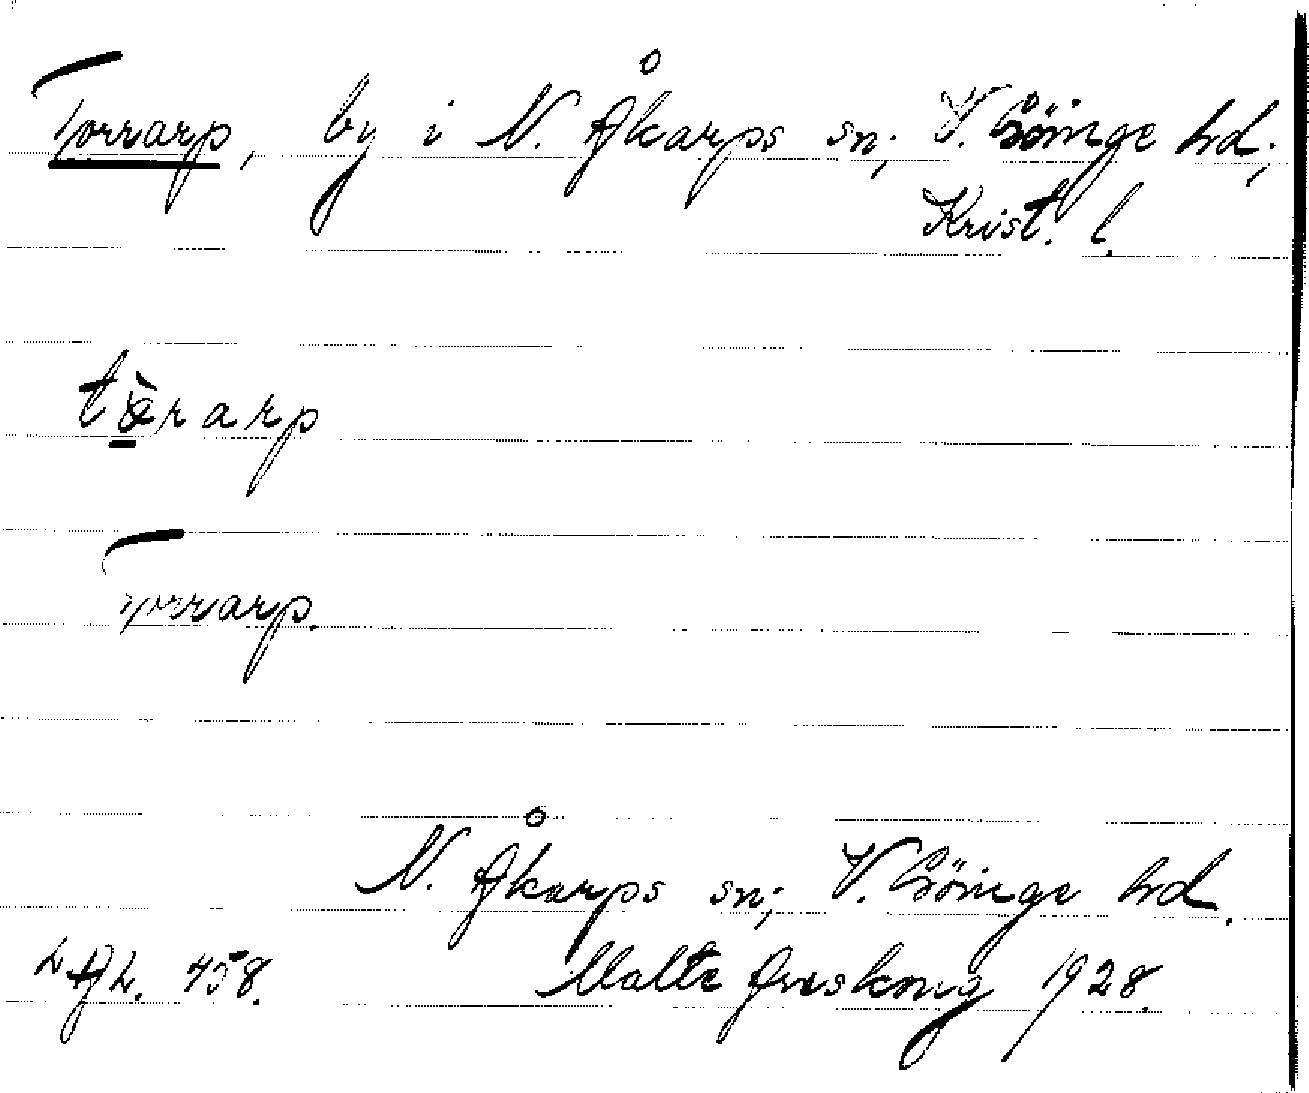 Torrarp, by i N. Åkarps sn; V. Göinge hd;
Krist. l.
Torrarp.
N. Åkarps sn; V. Göinge hd.
LAL. 458. Malte Areskoug 1928.